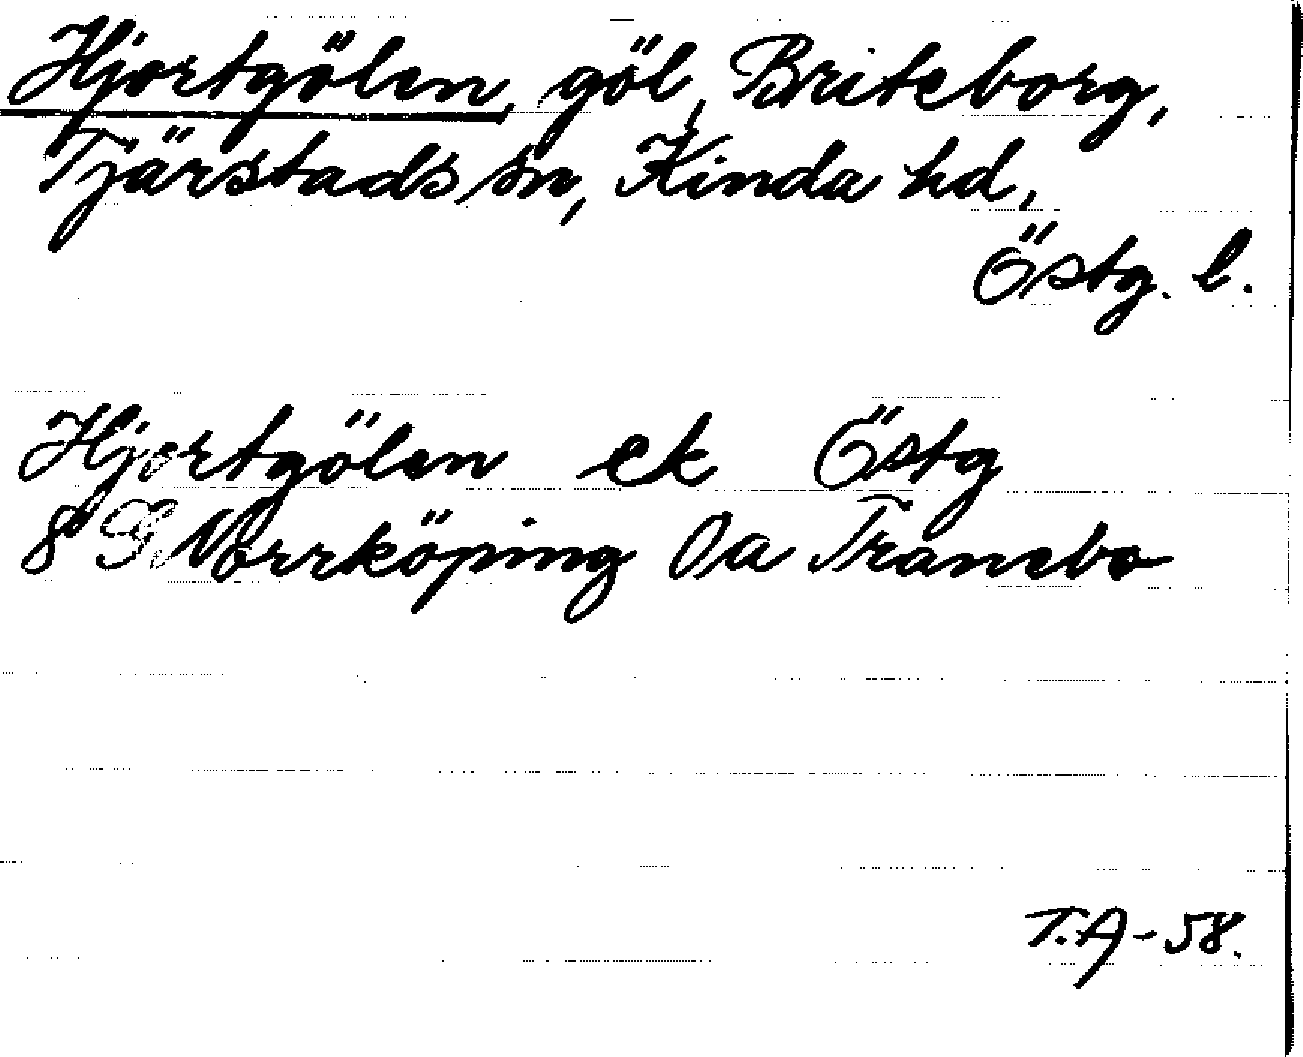 Hjortgölen, göl, Briteborg,
Tjärstads sn, Kinda hd,
Östg. l.
Hjortgölen ek Östg
8 G Norrköping Oa Tranebo
T.A-58.